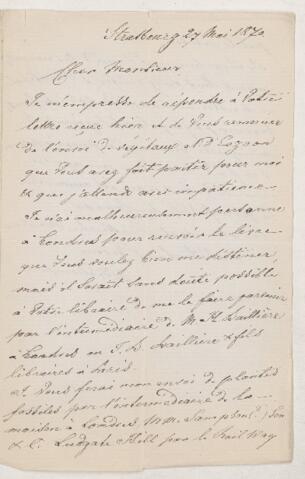 Strasbourg 27 Mai 1870
Cher Monsieur
Je m'empresse de répondre à Votre
lettre reçue hier et de Vous remercier
de l'envoi de végétaux
que Vous avez fait partir pour moi
& que j'attends avec impatience.
Je n'ai malheureusement personne
à Londres pour recevoir le livre
que Vous voulez bien me destiner,
mais il serait sans doute possible
à Votre libraire de me le faire parvenir
par l'intermédiaire de M H. Baillière
à Londres ou J. B. Baillière & fils
libraires à Paris.
Je Vous ferai mon envoi de plantes
fossiles par l'intermédiaire de la
maison à Londres MM. Sampson Son
& C. Ludgate Hill par le Rail Way